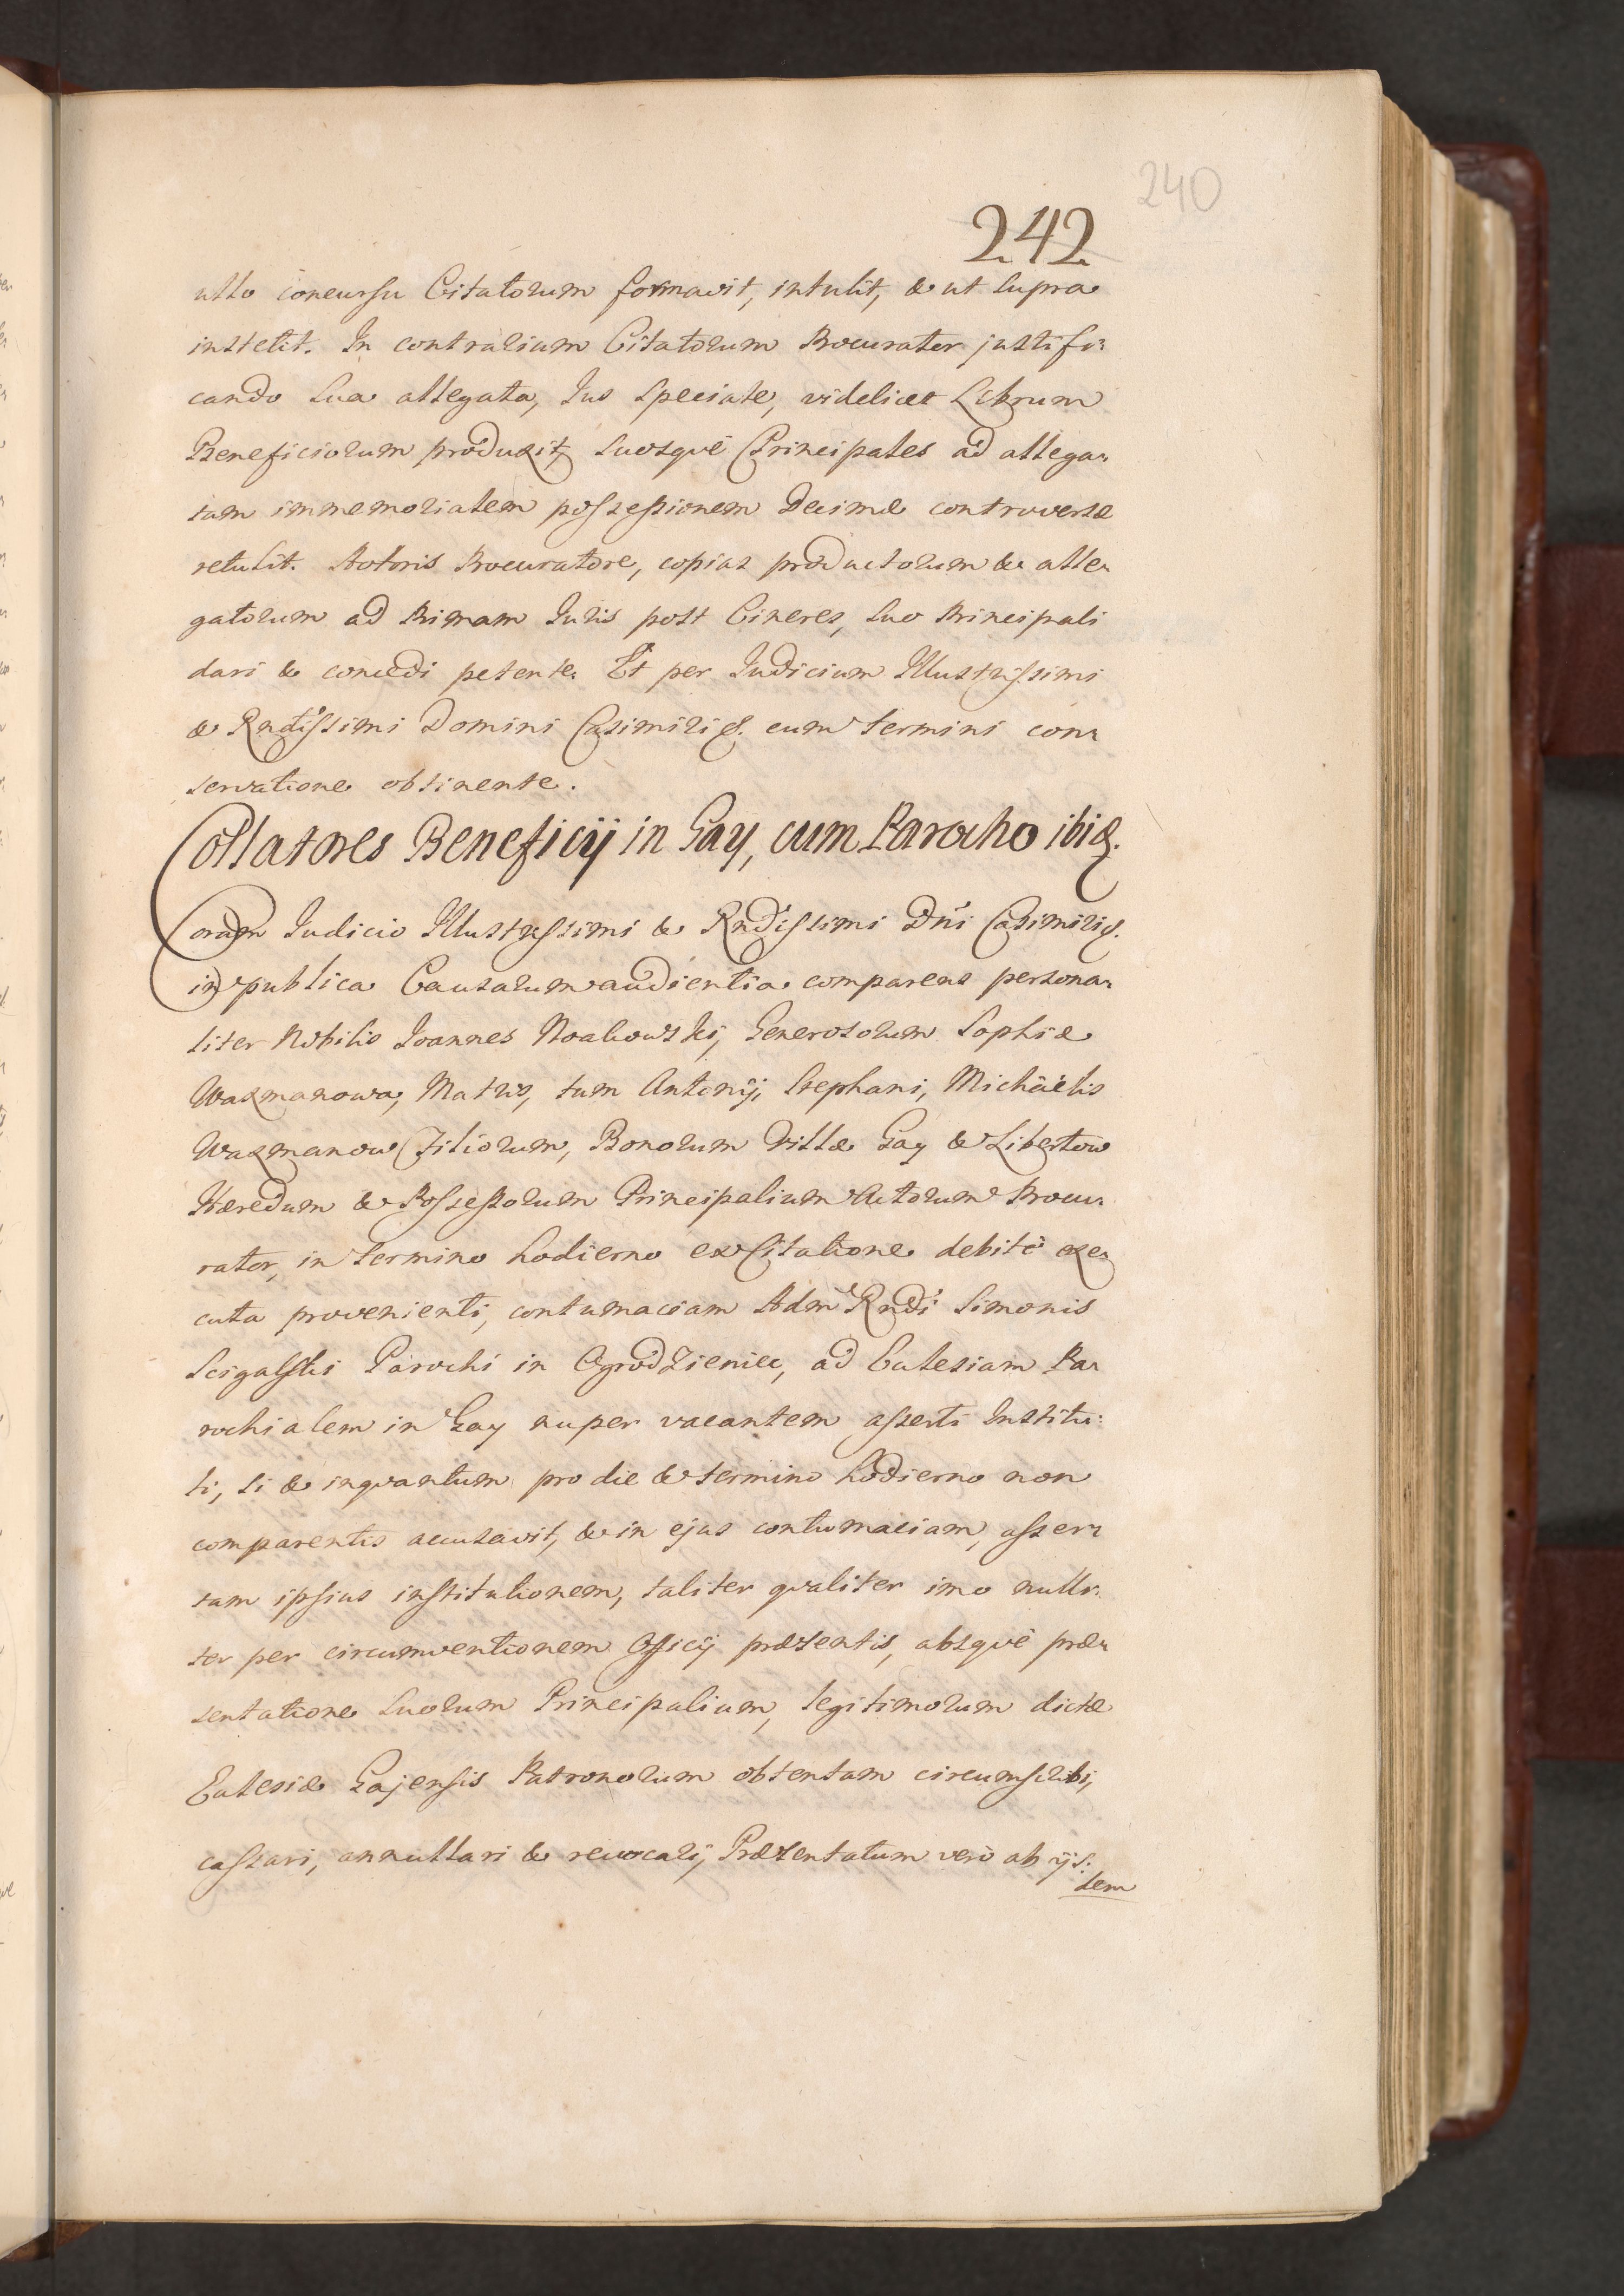 240
242
ullo concursu Citatorum formavit, intulit, & ut supra
institit. In contrarium Citatorum Procurator justifi-
cando sua allegata, Jus speciale, videlicet Librum
Beneficiorum produxit, suosque Principales ad allega-
tam immemorialem possessionem Decimæ controversæ
retulit. Actoris Procuratore, copias productorum & alle-
gatorum ad Primam Juris post Cineres, suo Principali
dari & concedi petente. Et per Judicium Illustrissimi
& Rndissimi Domini Casimiri &. cum termini con-
servatione obtinente.
Collatores Beneficij in Gay, cum Parocho ibid.
Coram Judicio Illustrissimi & Rndissimi Dni Casimiri &.
in publica Causarum audientia comparens persona-
liter Nobilis Joannes Noakowski, Generosorum Sophiæ
Waxmanowa, Matris, tum Antonij, Stephani, Michäelis
Waxmanow Filiorum, Bonorum Villæ Gay & Libertow
Hæredum & Possessorum Principalium Actorum Procu-
rator, in termino hodierno ex Citatione debitè exe-
cuta provenienti, contumaciam Adm Rndi Simonis
Scigalski Parochi in Ogrodzieniec, ad Ecclesiam Pa-
rochialem in Gay nuper vacantem asserti Institu-
ti, si & inquantum pro die & termino hodierno non
comparentis accusavit, & in ejus contumaciam, asser-
tam ipsius institutionem, taliter qualiter imo nulli-
ter per circumventionem Officij præsentis, absquè præ-
sentatione suorum Principalium, legitimorum dictæ
Ecclesiæ Gajensis Patronorum obtentam circumscribi,
cassari, annullari & revocari, Præsentatum verò ab ijs-
dem